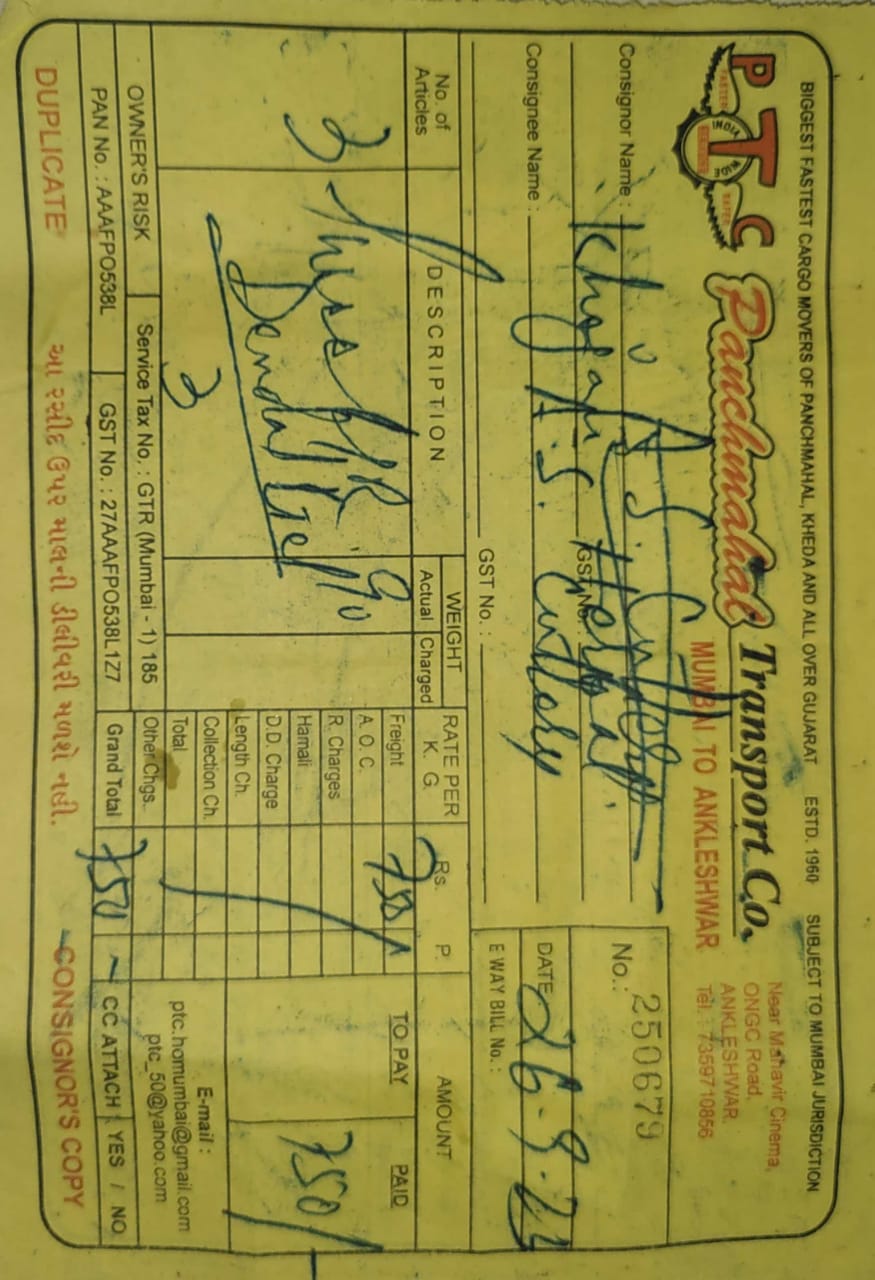 BIGGEST FASTEST CARGO MOVERS OF PANCHMAHAL, KHEDA AND ALL OVER GUJARAT ESTD. 1960 SUBJECT TO MUMBAI JURISDICTION
PTC Panchmahal Transport Co.
FASTER INDIA WIDE SAFER
MUMBAI TO ANKLESHWAR
Near Mahavir Cinema,
ONGC Road,
ANKLESHWAR.
Tel. : 7359710856
No.: 250679
Consignor Name :
GST No. :
Consignee Name : A.S. Cutlery
GST No. :
DATE 26.9.
E WAY BILL No. :
No. of Articles DESCRIPTION WEIGHT Actual Charged RATE PER K. G. Rs. P. AMOUNT
TO PAY PAID
3 Three 90
3
Freight 750
A. O. C.
R. Charges
Hamali
D.D. Charge
Length Ch.
Collection Ch.
Total
Other Chgs.
Grand Total 750
750/
E-mail :
ptc.homumbai@gmail.com
ptc_50@yahoo.com
OWNER'S RISK Service Tax No. : GTR (Mumbai - 1) 185
PAN No. : AAAFPO538L GST No. : 27AAAFPO538L1Z7
CC ATTACH YES / NO
DUPLICATE આ રસીદ ઉપર માલની ડીલીવરી મળશે નહી. CONSIGNOR'S COPY